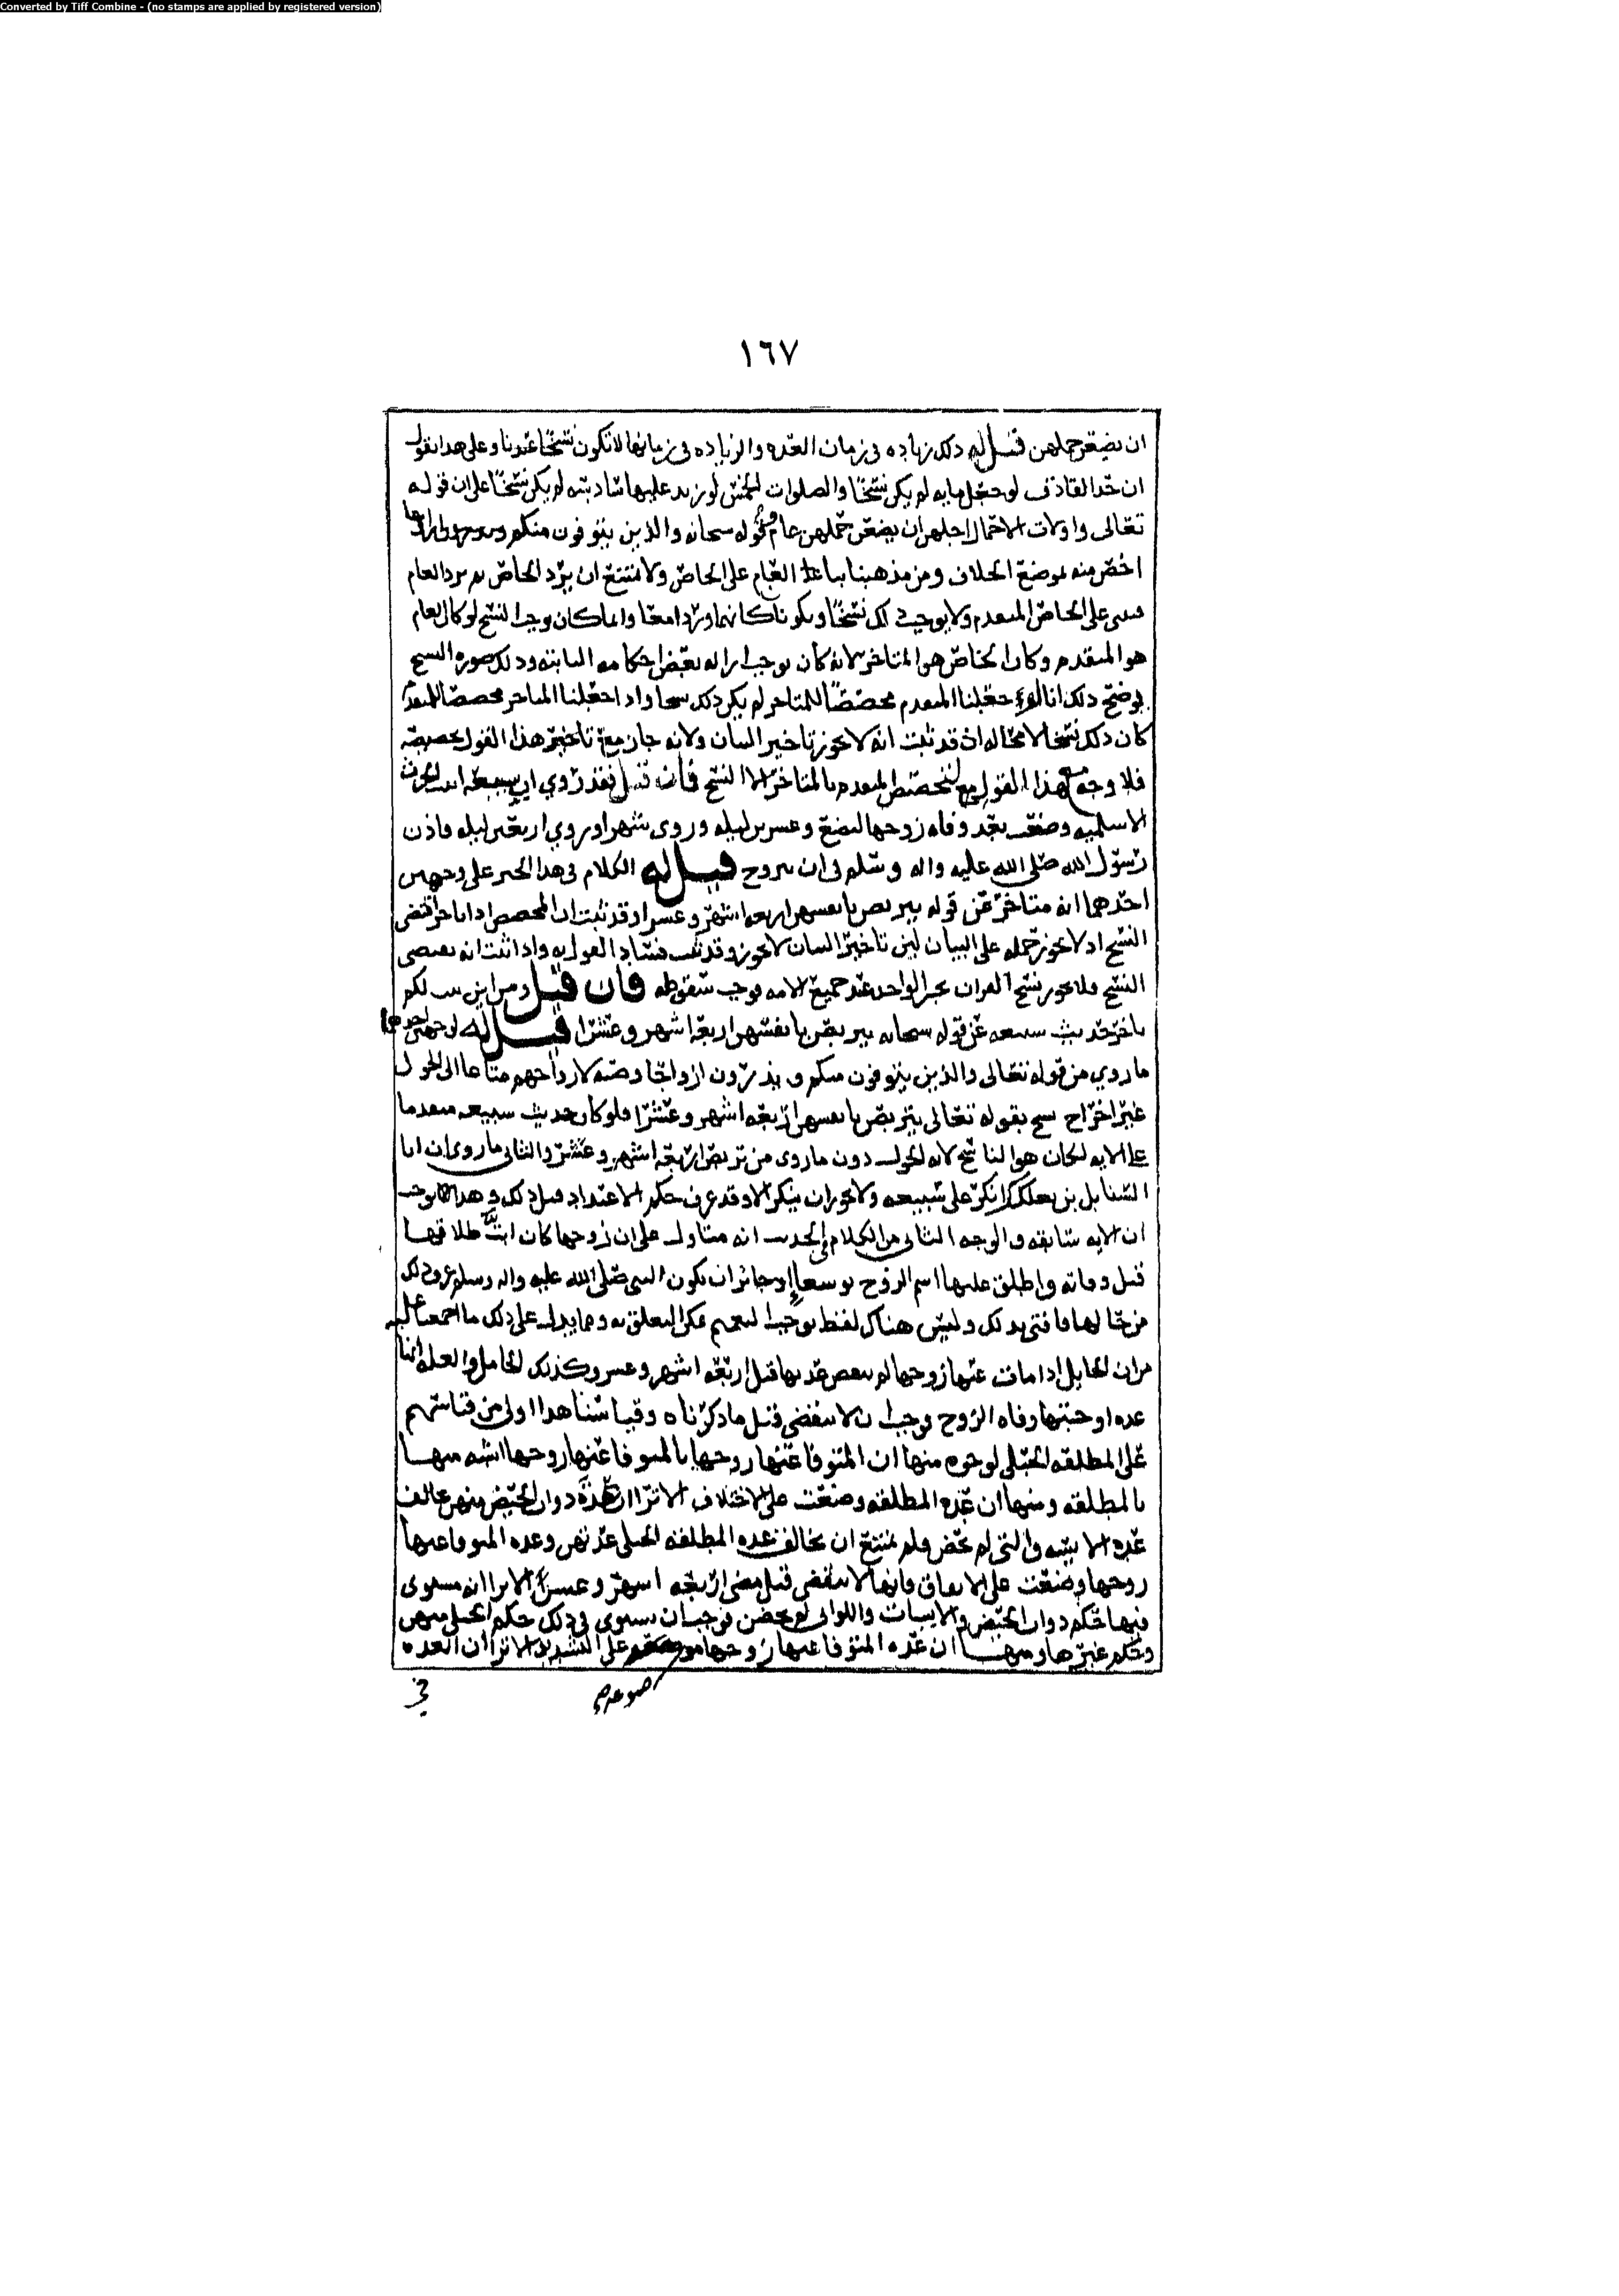 Converted by Tiff Combine - (no stamps are applied by registered version)
١٦٧
ان يضعن حملهن قيل له ذلك زياده في زمان العده والزياده في زمانها لا تكون نسخا عندنا وعلى هدا نقول
ان حد القاذف لو جعل مايه لم يكن نسخا والصلوات الخمس لو زيد عليها سادسه لم يكن نسخا على ان قوله
تعالى واولات الاحمال اجلهن ان يضعن حملهن عام وقوله سبحانه والذين يتوفون منكم ويذرون ازواجا
اخص منه لموضع الخلاف ومن مذهبنا بنا العام على الخاص ولا يمتنع ان يرد الخاص ثم يرد العام
فيبنى على الخاص المتقدم ولا يوجب ذلك نسخا ويكونا كانهما وردا معا وانما كان يوجب النسخ لو كان العام
هو المتقدم وكان الخاص هو المتاخر لانه كان يوجب ازاله بعض احكامه الثابته وذلك صوره النسخ
يوضح ذلك انا لو جعلنا المتقدم مخصصا للمتاخر لم يكن ذلك نسخا واذا جعلنا المتاخر مخصصا للمتقدم
كان ذلك نسخا لا محاله اذ قد ثبت انه لا يجوز تاخير البيان ولانه جاز مع تاخير هذا القول تخصيصه
فلا وجه لهذا القول مع تخصيص المتقدم بالمتاخر الا النسخ فان قيل فقد روي ان سبيعه ابنت الحرث
الاسلميه وضعت بعد وفاه زوجها لبضع وعشرين ليله وروى شهر او روي اربعين ليله فاذن
رسول الله صلى الله عليه واله وسلم في ان تتزوج قيل له الكلام في هدا الخبر على وجهين
احدهما انه متاخر عن قوله يتربصن بانفسهن اربعه اشهر وعشرا وقد ثبت ان المخصص اذا تاخر اقتضى
النسخ اذ لا يجوز حمله على البيان لان تاخير البيان لا يجوز وقد ثبت فساد القول به واذا ثبت انه يقتضي
النسخ فلا يجوز نسخ القران بخبر الواحد عند جميع الامه فوجب سقوطه فان قيل ومن اين ثبت لكم
تاخر حديث سبيعه عن قوله سبحانه يتربصن بانفسهن اربعه اشهر وعشرا قيل له لوجهين احدهما
ما روي من قوله تعالى والذين يتوفون منكم ويذرون ازواجا وصيه لازواجهم متاعا الى الحول
غير اخراج نسخ بقوله تعالى يتربصن بانفسهن اربعه اشهر وعشرا فلو كان حديث سبيعه متقدما
على الايه لكان هو الناسخ لايه الحول دون ما روى من تربص اربعه اشهر وعشر والثاني ما روى ان ابا
السنابل بن بعكك انكر على سبيعه ولا يجوز ان ينكر الا وقد عرف حكم الاعتداد قبل ذلك وهدا يوجب
ان الايه سابقه والوجه الثاني من الكلام في الحديث انه متاول على ان زوجها كان ابت طلاقها
قبل وفاته واطلق عليها اسم الزوج توسعا وجائز ان يكون النبي صلى الله عليه واله وسلم عرف ذلك
من حالها فافتى بذلك وليس هناك لفظ يوجب التعميم فيمكن التعلق به ومما يدل على ذلك ما اجمعنا عليه
من ان الحايل اذا مات عنها زوجها لم تنقض عدتها قبل اربعه اشهر وعشر وكذلك الحامل والعله انها
عده اوجبتها وفاه الزوج فوجب ان لا تنقضي قبل ما ذكرناه وقياسنا هدا اولى من قياسهم
على المطلقه الحبلى لوجوه منها ان المتوفا عنها زوجها بالمتوفا عنها زوجها اشبه منها
بالمطلقه ومنها ان عده المطلقه وضعت على الاختلاف الا ترا ان عده ذوات الحيض منهن تخالف
عده الايسه والتى لم تحض فلم يمتنع ان يخالف عده المطلقه الحبلى عدتهن وعده المتوفا عنها
زوجها وضعت على الاتفاق فانها لا تنقضي قبل مضي اربعه اشهر وعشر الا ترا انه يستوي
فيها حكم ذوات الحيض والايسات واللواتى لم يحضن فوجب ان يستوي في ذلك حكم الحبلى منهن
وحكم غيرها ومنها ان عده المتوفا عنها زوجها موضوعه على التشديد الا ترا ان العده
موضوعه
في